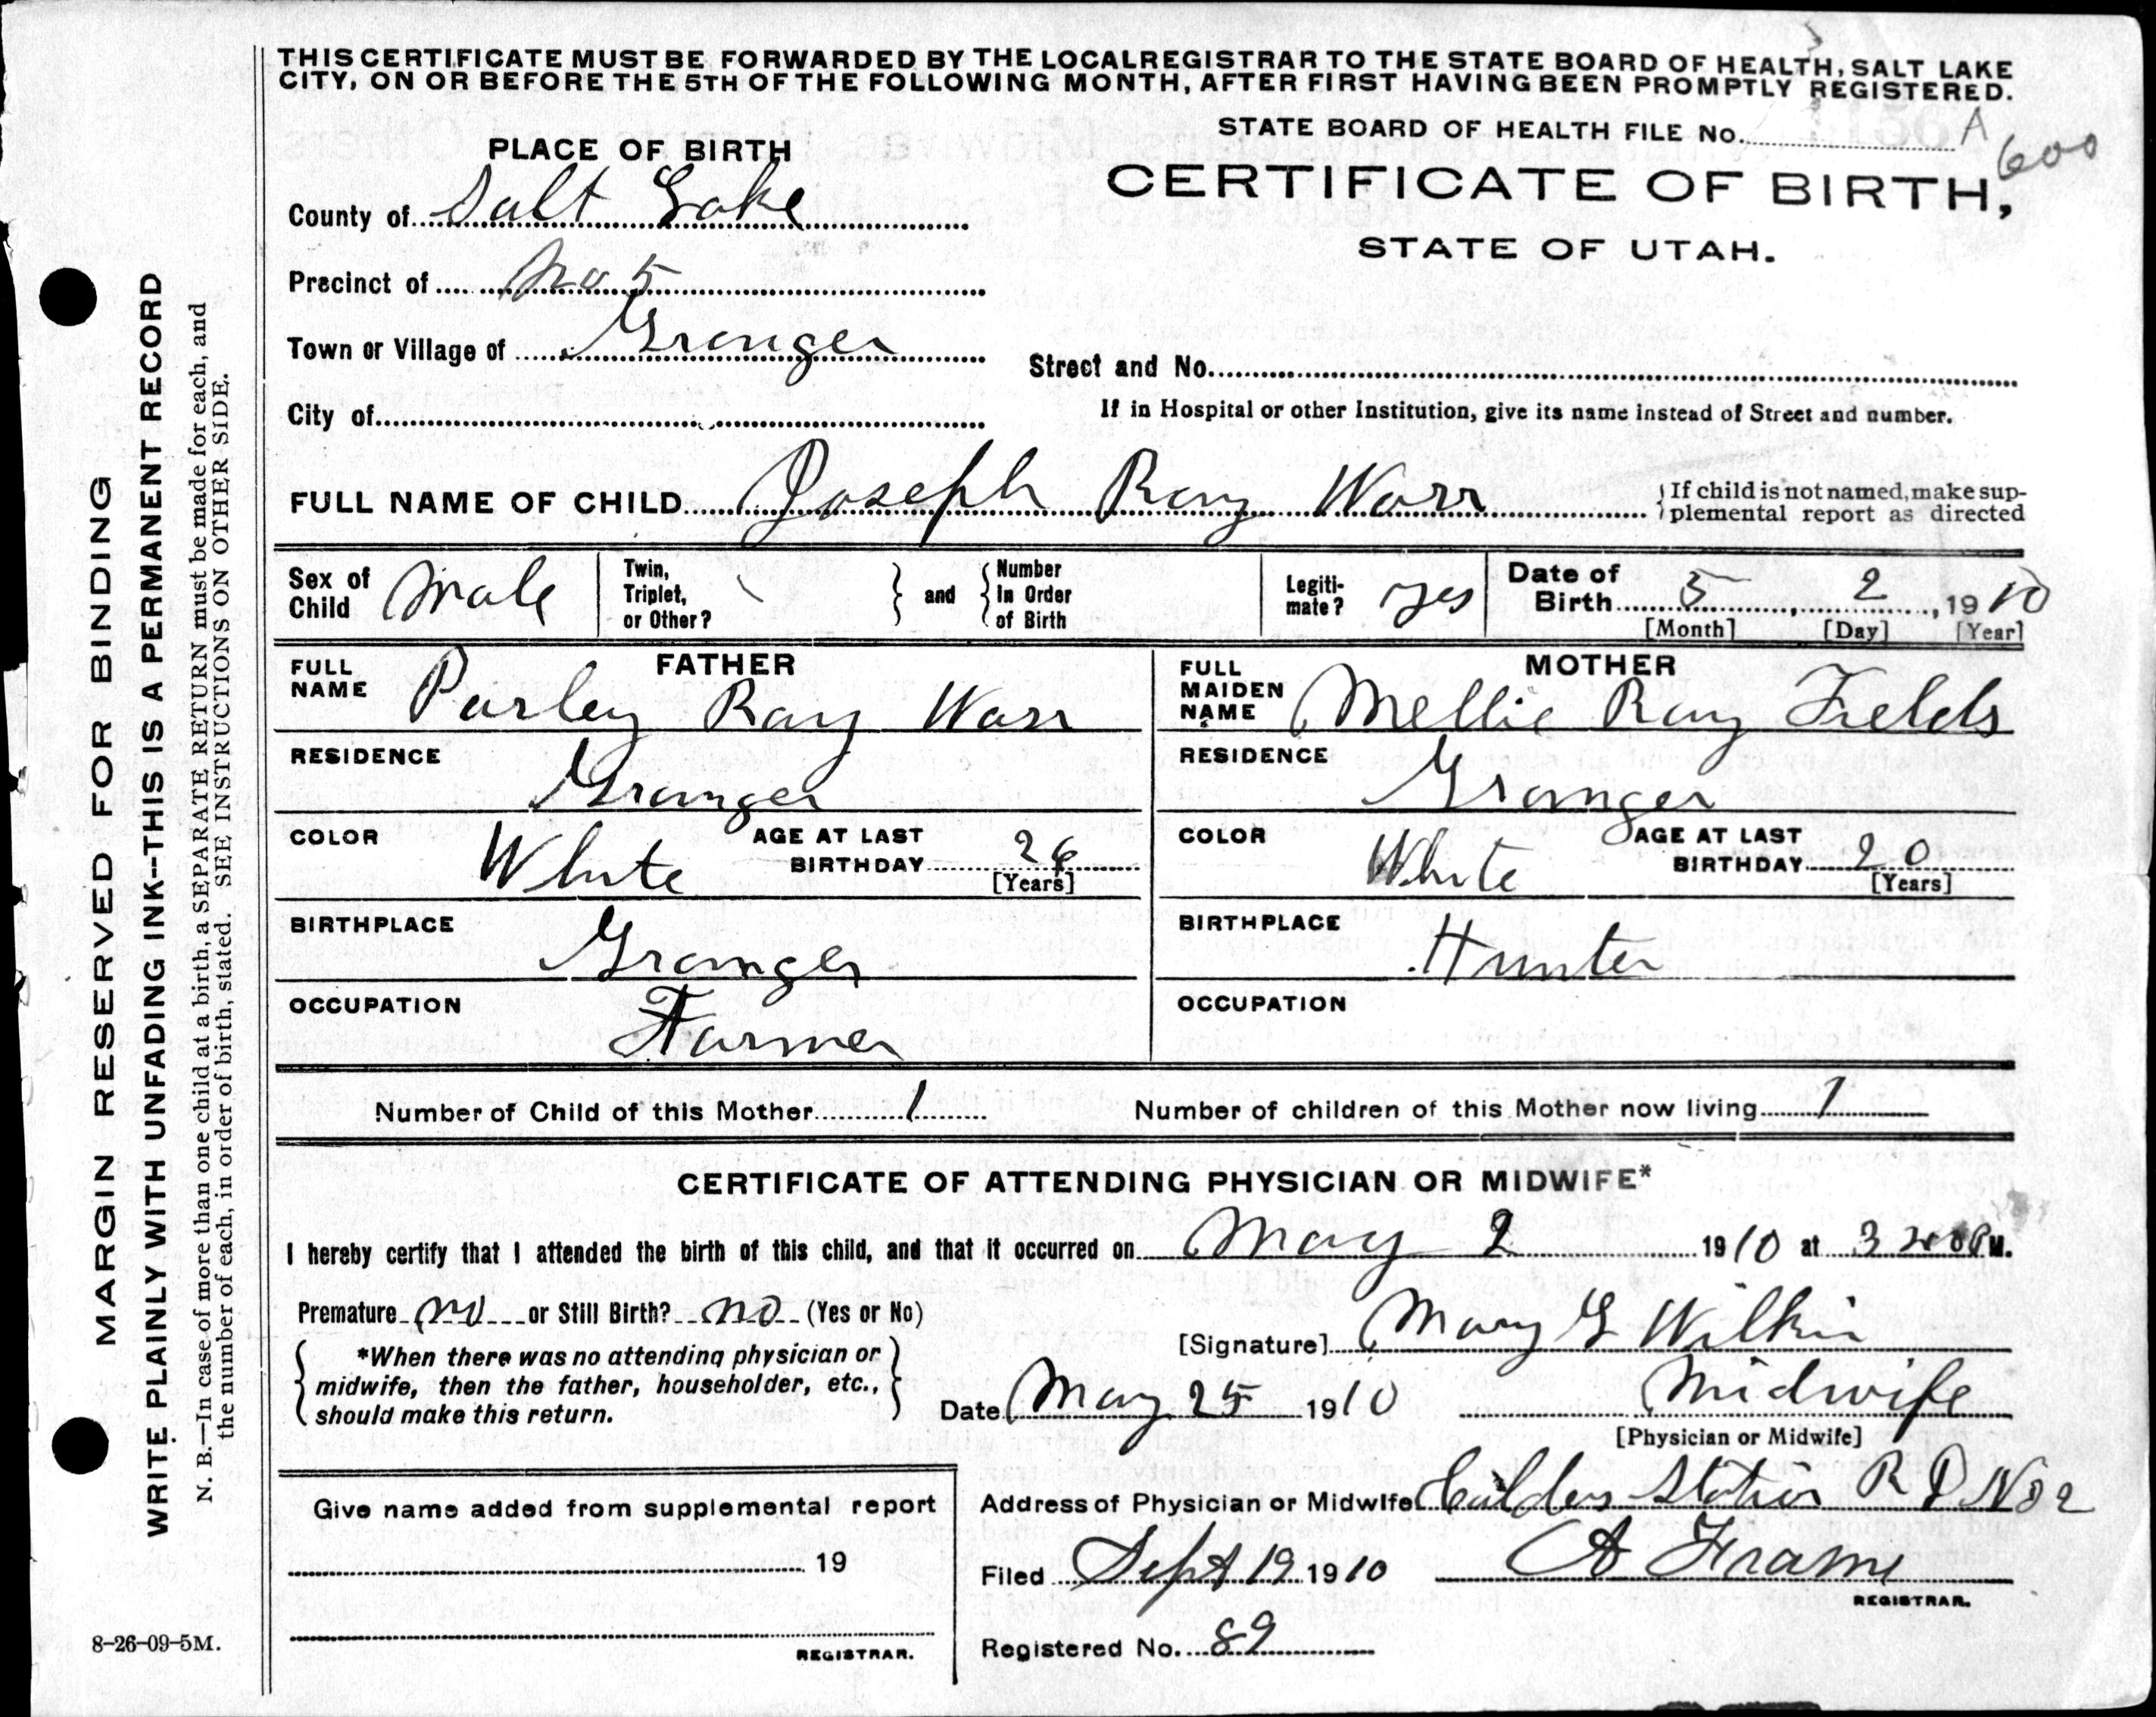 THIS CERTIFICATE MUST BE FORWARDED BY THE LOCAL REGISTRAR TO THE STATE BOARD OF HEALTH, SALT LAKE
CITY, ON OR BEFORE THE 5TH OF THE FOLLOWING MONTH, AFTER FIRST HAVING BEEN PROMPTLY REGISTERED.
STATE BOARD OF HEALTH FILE No. A 600
PLACE OF BIRTH
CERTIFICATE OF BIRTH,
STATE OF UTAH.
County of Salt Lake
Precinct of No 5
Town or Village of Granger
Street and No.
City of
If in Hospital or other Institution, give its name instead of Street and number.
FULL NAME OF CHILD Joseph Ray Warr
If child is not named, make sup-
plemental report as directed
Sex of Child Male
Twin, Triplet, or Other?
and
Number In Order of Birth
Legiti-mate? yes
Date of Birth 5, 2, 1910
[Month] [Day] [Year]
FATHER
FULL NAME Parley Ray Warr
RESIDENCE Granger
COLOR White
AGE AT LAST BIRTHDAY 26
[Years]
BIRTHPLACE Granger
OCCUPATION Farmer
MOTHER
FULL MAIDEN NAME Mellie Ray Fields
RESIDENCE Granger
COLOR White
AGE AT LAST BIRTHDAY 20
[Years]
BIRTHPLACE Hunter
OCCUPATION
Number of Child of this Mother 1
Number of children of this Mother now living 1
CERTIFICATE OF ATTENDING PHYSICIAN OR MIDWIFE*
I hereby certify that I attended the birth of this child, and that it occurred on May 2 1910 at 3 P M.
Premature no or Still Birth? no (Yes or No)
*When there was no attending physician or
midwife, then the father, householder, etc.,
should make this return.
[Signature] Mary G Wilkin
Date May 25 1910
Midwife
[Physician or Midwife]
Address of Physician or Midwife Calders Station R D No 2
Give name added from supplemental report
19
REGISTRAR.
Filed Sept 19 1910
A Frame
REGISTRAR.
Registered No. 89
8-26-09-5M.
MARGIN RESERVED FOR BINDING
WRITE PLAINLY WITH UNFADING INK--THIS IS A PERMANENT RECORD
N. B.—In case of more than one child at a birth, a SEPARATE RETURN must be made for each, and
the number of each, in order of birth, stated. SEE INSTRUCTIONS ON OTHER SIDE.